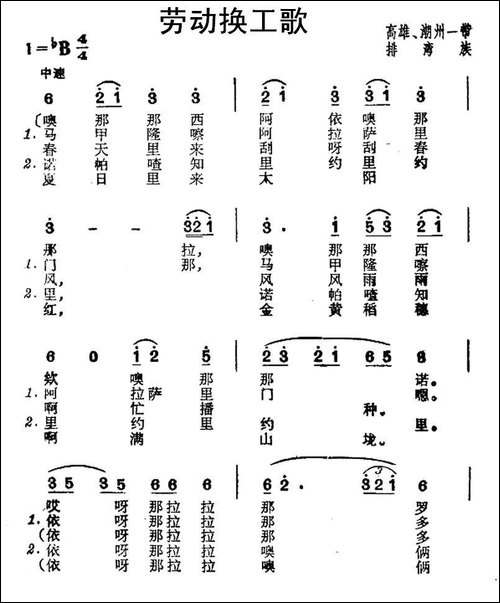 劳动换工歌
1=♭B 4/4
高雄、潮州一带
排湾族
中速
6 2̇ 1̇ 3̇ 3̇ | 2̇ 3̇ 3̇ 1̇ 3̇ |
(噢 那 那 西 阿 依 噢 那
1. 马 甲 隆 嚓 阿 拉 萨 里
春 天 里 来 刮 呀 刮 春
2. 诺 帕 喳 知 里 约 里 约
夏 日 里 来 太 阳
3̇ - - 3̇2̇1̇ | 3̇ · 1̇ 5̇ 3̇ 2̇ 1̇ |
那 拉, 噢 那 那 西
1. 门 那, 马 甲 隆 嚓
风, 风 风 雨 雨
2. 里, 诺 帕 喳 知
红, 金 黄 稻 穗
6 0 1̇ 2̇ 5̇ | 2̇ 3̇ 2̇ 1̇ 6 5 6 |
欸 噢 那 那 诺。
1. 阿 拉 萨 里 门 嗯。
啊 忙 播 种。
2. 里 约 里 约 里。
啊 满 山 垅。
3 5 3 5 6 6 6 | 6 2̇ · 3̇ 2̇ 1̇ 6
哎 呀 那 拉 拉 那 罗
1. 依 呀 那 拉 拉 那 多
(依 呀 那 拉 拉 那 多
2. 依 呀 那 拉 拉 噢 俩
(依 呀 那 拉 拉 噢 俩